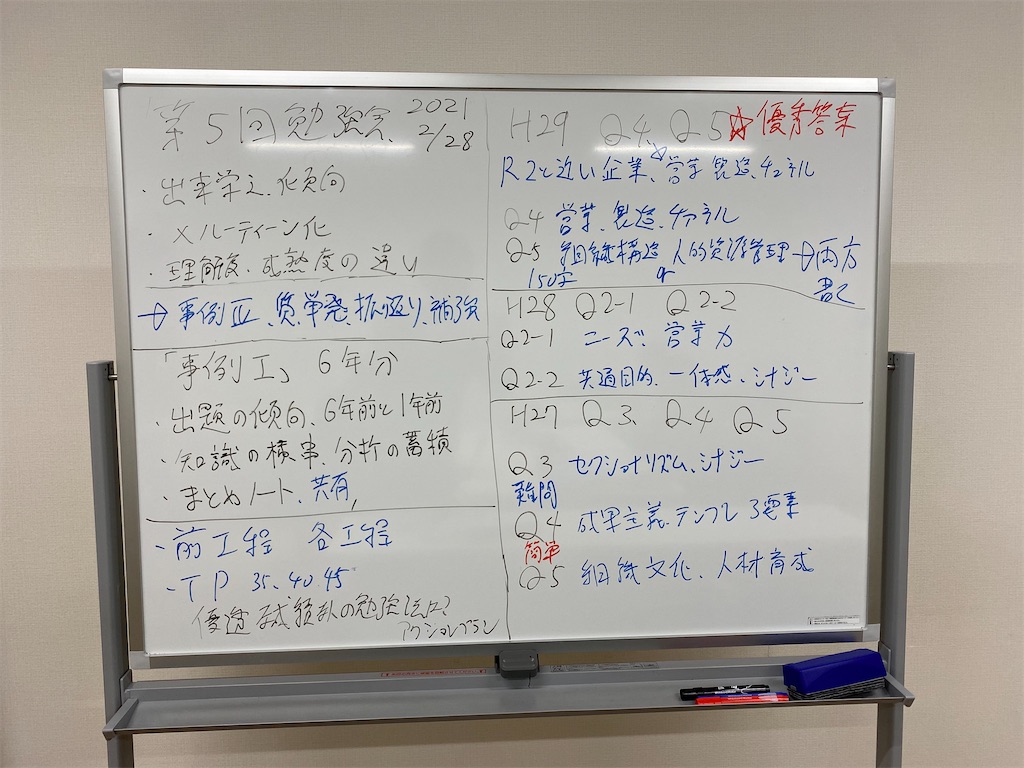 第5回勉強会 2021 2/28
・出事学え、傾向
・×ルーティーン化
・理解度、成熟度の違い
→事例Ⅳ、質単発、振り返り、補強
「事例Ⅰ」 6年分
・出題の傾向、6年前と1年前
・知識の横串、分析の蓄積
・まとめノート、共有
・前工程 各工程
・TP 35.40.45
の勉強法は?
アクションプラン
H29 Q4、Q5 ☆優秀答案
R2と近い企業、営業、製造、チャネル
Q4 営業、製造、チャネル
Q5 組織構造、人的資源管理→両方書く
150字
H28 Q2-1 Q2-2
Q2-1 ニーズ、営業力
Q2-2 共通目的、一体感、シナジー
H27 Q3、Q4 Q5
Q3 セクショナリズム、シナジー
難問
Q4 成果主義、テンプレ 3要素
簡単
Q5 組織文化、人材育成